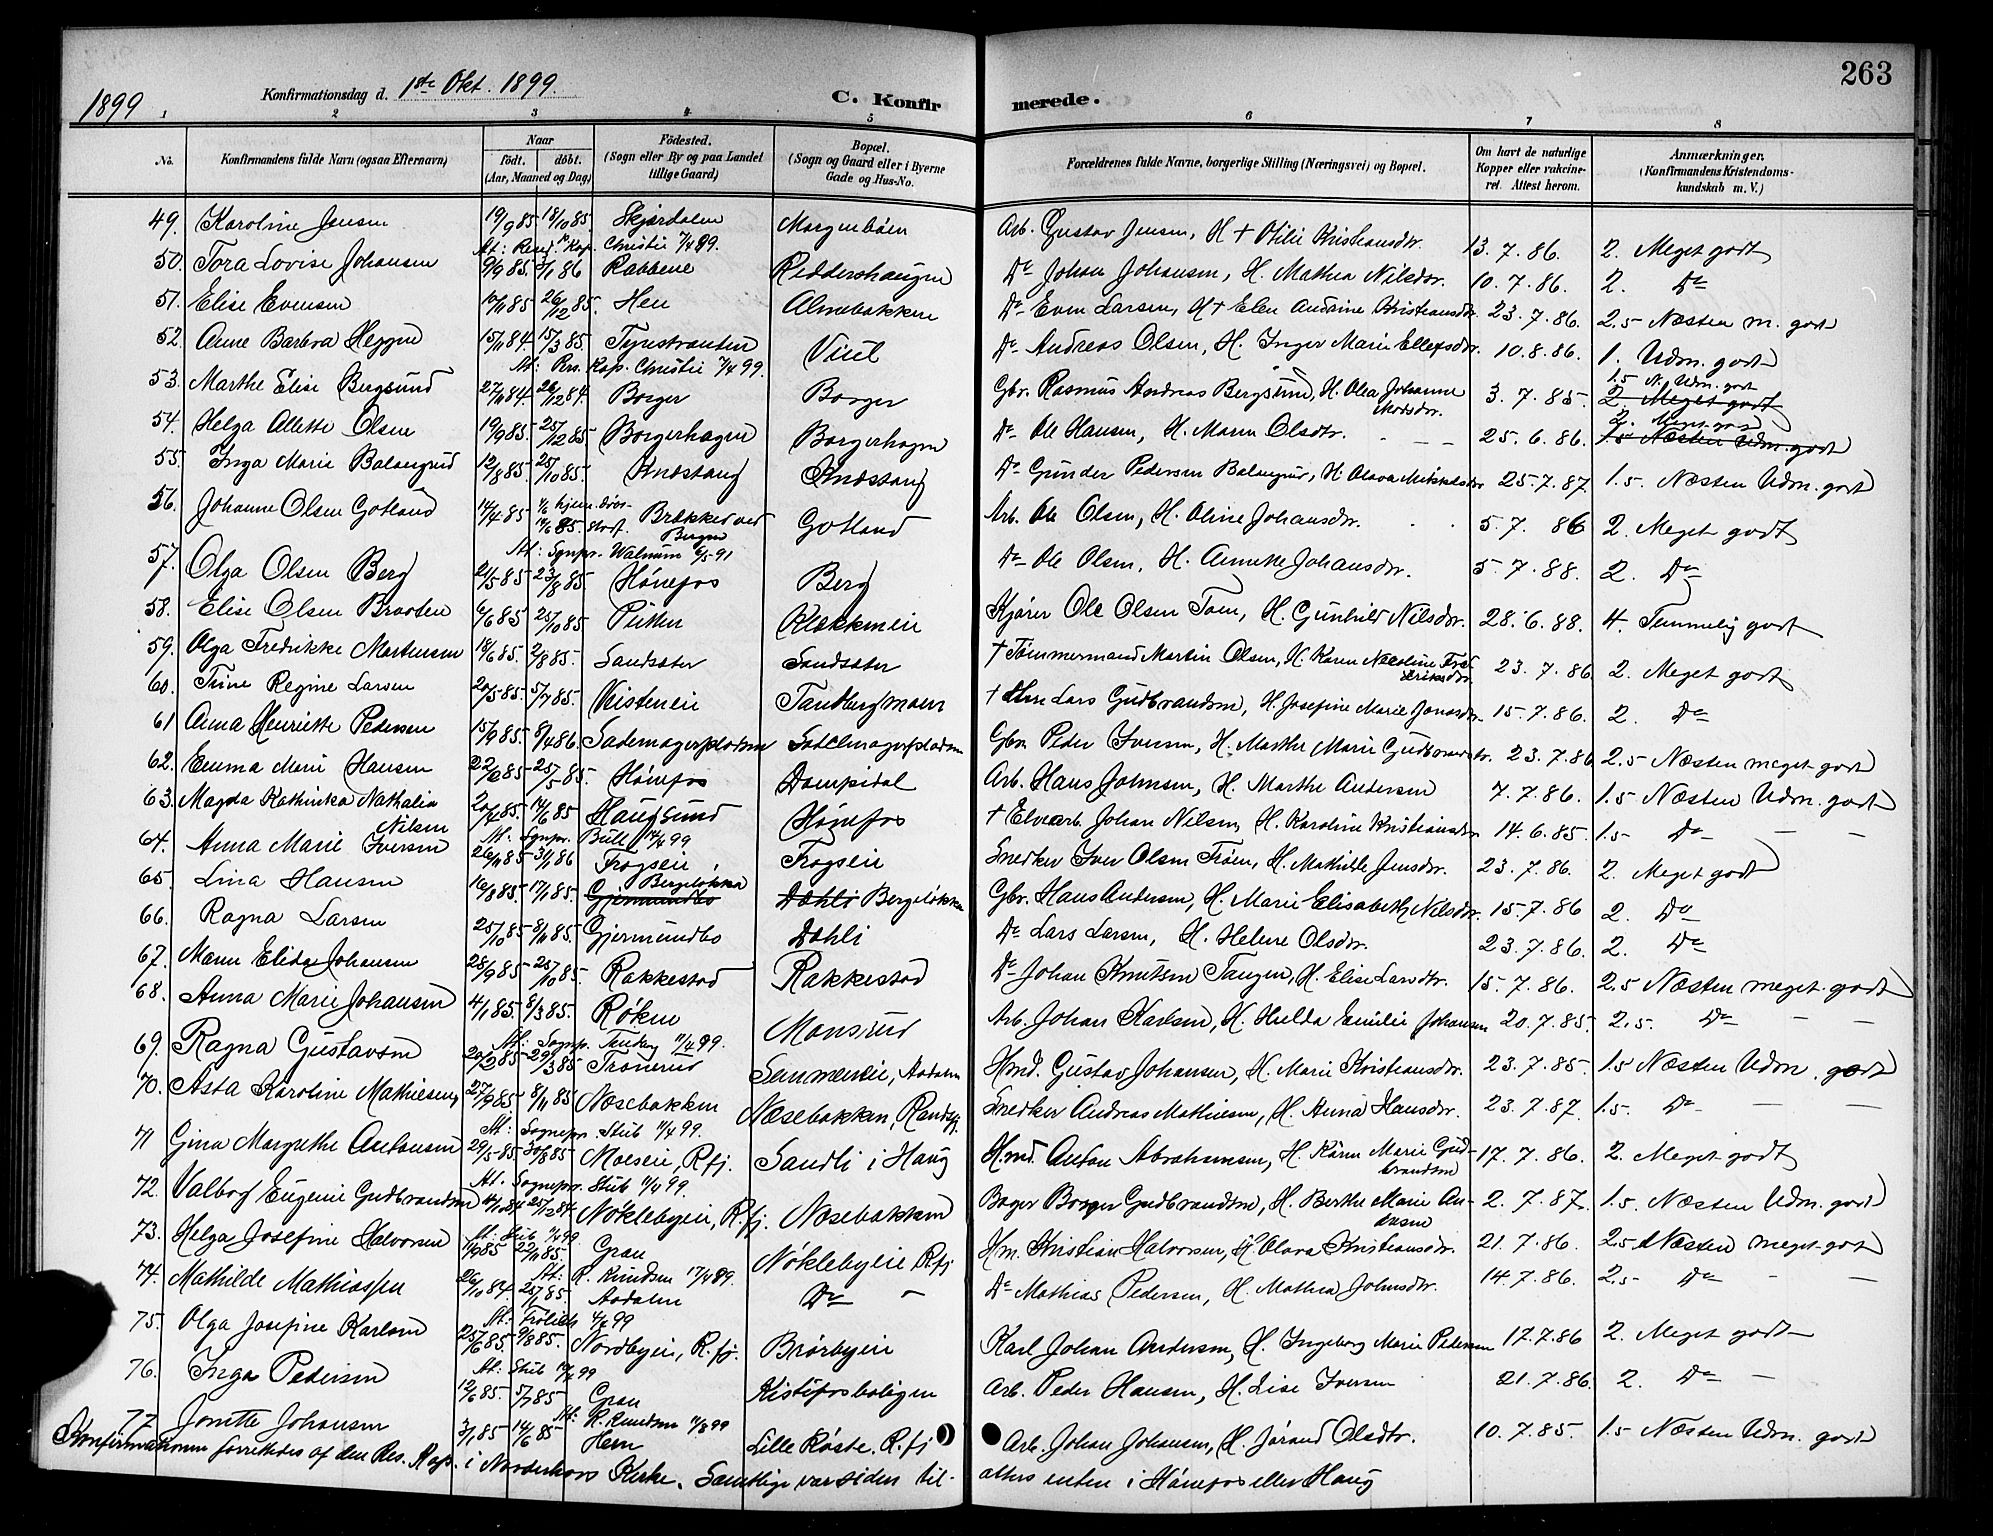 263
1899 Konfirmationsdag d. 1ste Okt. 1899. C. Konfirmerede.
1 2 3 4 5 6 7 8
No. Konfirmandens fulde Navn (ogsaa Efternavn) Naar født. døbt. (Aar, Maaned og Dag) Fødested. (Sogn eller By og paa Landet tillige Gaard) Bopæl. (Sogn og Gaard eller i Byerne Gade og Hus-No. Forældrenes fulde Navne, borgerlige Stilling (Næringsvei) og Bopæl. Om havt de naturlige Kopper eller vakcineret. Attest herom. Anmærkninger. (Konfirmandens Kristendomskundskab m. V.)
49. Karoline Jensen 19/9 85 18/10 85 Skjærdalen Arb. Gustav Jensen, H. † Otilie Kristiansdtr. 13.7.86. 2. Meget godt
Christie 7/4 99.
50. Tora Lovise Johansen 9/9 85 Rabbene Do Johan Johansen, H. Mathea Nilsdtr. 10.7.86. 2. Do
51. Elise Evensen 26/12 85. Hen Almebakken Do Even Larsen, H † Elen Andrine Kristiansdtr. 23.7.86. 2.5 Næsten m. godt
52. Anne Barbra Heggen 15/11 84 15/3 85. Do Andreas Olsen, H. Inger Marie Ellefsdtr. 10.8.86. 1. Udm. godt
At: Res. Kap. Christie 7/4 99.
53. Marthe Elise Bergsund 27/11 84. 26/12 84. Borger Borger Gbr. Rasmus Andreas Bergsund, H. Olea Johanne 3.7.85. 1.5 N. Udm. godt
2 Meget godt
54. Helga Alette Olsen 19/9 85. 25/12 85 Borgerhagen Borgerhagen Do Ole Hansen, H. Maren Olsdtr. 25.6.86. 2. Meget godt
1.5 Næsten Udm. godt
55. Inga Marie Balangrud 12/8 85. 25/10 85. Knestang Knestang Do Gunder Pedersen Balangrud, H. Olava Mikkelsdtr 25.7.87. 1.5. Næsten Udm. godt
56. Johanne Olsen Gotland 14/4 85 Brække ved Bergen Gotland Arb. Ole Olsen, H. Oline Johansdtr. 5.7.86 2. Meget godt
At: Sgnpr. Walnum 6/5 91
57. Olga Olsen Berg 21/5 85 23/8 85 Hönefos Berg Do Ole Olsen, H. Anneke Johansdtr. 5.7.88. 2. Do
58. Elise Olsen Braaten 4/6 85 25/10 85 Klækkmeie Kjører Ole Olsen Toen, H. Gunhild Nilsdtr. 28.6.88. 4. Temmelig godt
59. Olga Fredrikke Martinsen 18/6 85. 2/8 85. Sandsæter Sandsæter † Tömmermand Martin Olsen, H. Karen Nicoline Fredriksdtr. 23.7.86 2. Meget godt
60. Trine Regine Larsen 20/5 85. 5/7 85. Vesterneie Tandbergmoen † Lars Gudbrandsen, H. Josefine Marie Jonasdtr. 15.7.86. 2. Do
61 Anna Henriette Pedersen 15/9 85. 8/4 86. Sadelmagerpladsen Sadelmagerpladsen Gbr. Peder Iversen, H. Marthe Marie Gudbrandsdtr. 23.7.86 2.5 Næsten meget godt
62. Emma Marie Hansen 25/5 85. Hönefos Dampsdal Arb. Hans Johnsen, H. Marthe Andersen 7.7.86. 1.5 Næsten Udm. godt
63. Magda Kathinka Nathalia Nilsen 20/4 85. 14/6 85 Haugsund Hönefos † Elvearb. Johan Nilsen, H. Karoline Kristiansdtr 14.6.85. 1.5 Do
At. Sgnpr. Bull 14/4 99
64. Anna Marie Iversen 26/11 85 3/1 86 Trogseie Trogseie Snedker Iver Olsen Troen, H. Mathilde Jensdtr. 23.7.86. 2. Meget godt
65. Lina Hansen 16/8 85. 17/1 85. Bergeløkka Gjermundbo Dæhli Bergeløkka Gbr. Hans Andersen, H. Marie Elisabeth Nilsdtr. 15.7.86 2. Do
66. Ragna Larsen 25/10 85 8/11 85. Gjermundbo Dæhli Do Lars Larsen, H. Helene Olsdtr. 23.7.86. 2. Do
67. Maren Elida Johansen 28/9 85 25/10 85. Rakkestad Rakkestad Do Johan Knutsen Tangen, H. Elise Larsdtr. 15.7.86. 2.5 Næsten meget godt
68. Anna Marie Johansen 4/1 85 8/3 85. Røken Monsrud Arb. Johan Karlsen, H. Hulda Emilie Johansen 20.7.85. 2.5. Do
At: Sognpr. Tenberg 11/4 99.
69. Ragna Gustavsen 20/2 85 29/3 85 Tronerud Sanmeneie, Aadalen Hmd. Gustav Johansen, H. Marie Kristiansdtr. 23.7.85. 1.5 Næsten Udm. godt
70. Asta Karoline Mathiesen 27/9 85 8/11 85 Næsebakken Næsebakken, Randsfj. Snedker Andreas Mathiesen, H. Anna Hansdtr. 23.7.87. 1.5. Do
At: Sognepr. Stub 11/4 99.
71 Gina Margrethe Antonsen 29/5 85 30/8 85 Moeseie, Rfj. Sandli i Haug Hmd. Anton Abrahamsen, H. Karen Marie Gudbrandsen 17.7.86. 2. Meget godt
At. Sognepr. Stub 11/4 99.
72. Valborg Eugenie Gudbrandsen 25/12 84 Nøklebyeie, R.fj. Næsebakken Bager Borger Gudbrandsen, H. Berthe Marie Andersen 2.7.87. 1.5 Næsten Udm. godt
73. Helga Josefine Halvorsen 22/11 85 Gran Nøklebyeie R.fj Hm. Kristian Halvorsen, H. Olava Kristiansdtr. 21.7.86. 2.5 Næsten meget godt
At. R. Knudsen 17/4 89.
74. Mathilde Mathiassen 26/10 84. 25/1 85. Aadalen Do Do Mathias Pedersen, H. Mathea Johnsdtr. 14.7.86. 2.5 Do
75. Olga Josefine Karlsen 25/6 85 9/8 85. Nordbyeie, R.fj. Brørbyeie Karl Johan Andersen, H. Ingeborg Marie Pedersen 17.7.86 2. Meget godt
76. Inga Pedersen 12/6 85. 5/7 85 Gran Kistefosboligen Arb. Peder Hansen, H. Lise Iversen 21.7.86. 2. Do
At: R. Knudsen 11/3 99
77 Jonette Johansen 3/1 85 14/6 85 Hem Lille Røste. R.fj Arb. Johan Johansen, H. Jørand Olsdtr. 10.7.85. 1.5 Næsten Udm. godt
Konfirmationen forrettedes af den Res. Kap. i Norderhovs Kirke. Samtlige var siden til- alters enten i Hönefos eller Haug